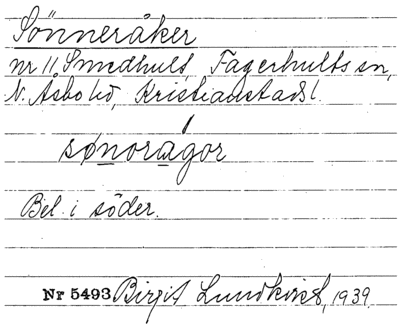 Sönneråker
nr 11 Smedhult, Fagerhults sn,
N. Åsbo hd, Kristianstads l.
sønorågor
Bel. i söder.
Nr 5493 Birgit Lundkvist, 1939.